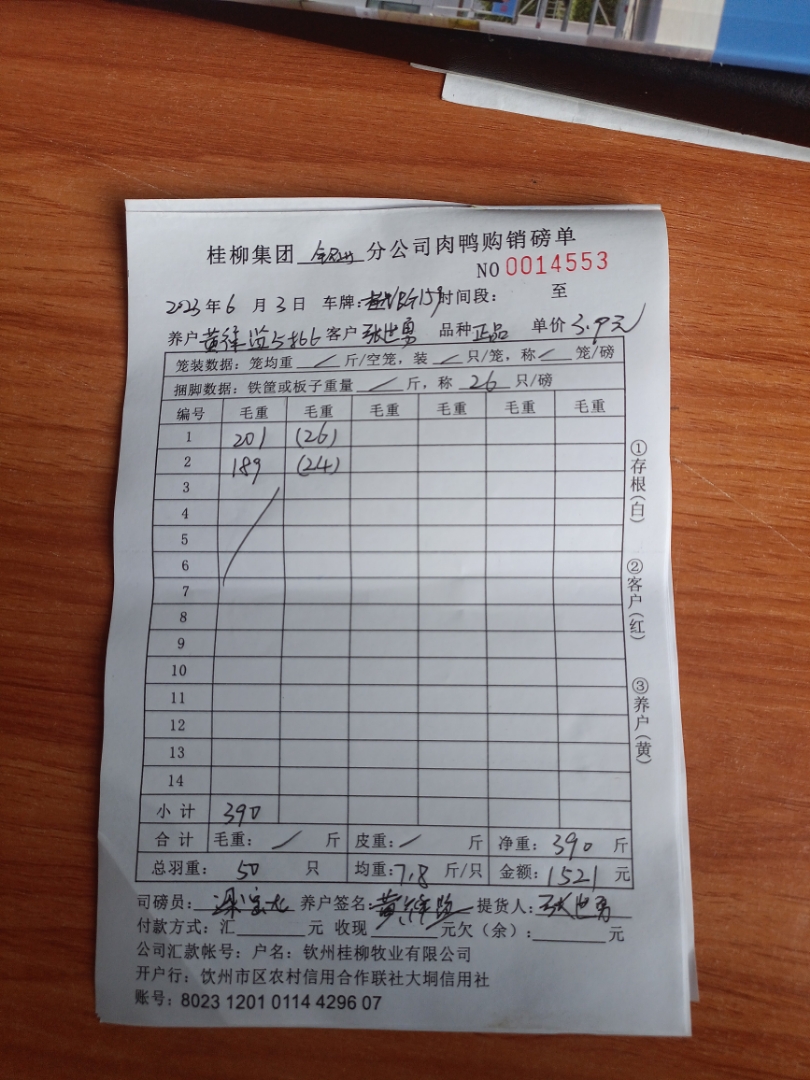 桂柳集团 钦州 分公司肉鸭购销磅单
NO 0014553
2023年6月3日 车牌: 时间段: 至
养户 黄 客户 张世勇 品种 正品 单价 3.9元
笼装数据: 笼均重 / 斤/空笼, 装 / 只/笼, 称 / 笼/磅
捆脚数据: 铁筐或板子重量 / 斤, 称 26 只/磅
编号 毛重 毛重 毛重 毛重 毛重 毛重
1 201 (26)
2 189 (24)
3
4
5
6
7
8
9
10
11
12
13
14
小计 390
合计 毛重: / 斤 皮重: / 斤 净重: 390 斤
总羽重: 50 只 均重: 7.8 斤/只 金额: 1521 元
司磅员: 养户签名: 黄 提货人: 张世勇
付款方式: 汇 元 收现 元欠(余): 元
公司汇款帐号: 户名: 钦州桂柳牧业有限公司
开户行: 饮州市区农村信用合作联社大垌信用社
账号: 8023 1201 0114 4296 07
①存根(白)
②客户(红)
③养户(黄)